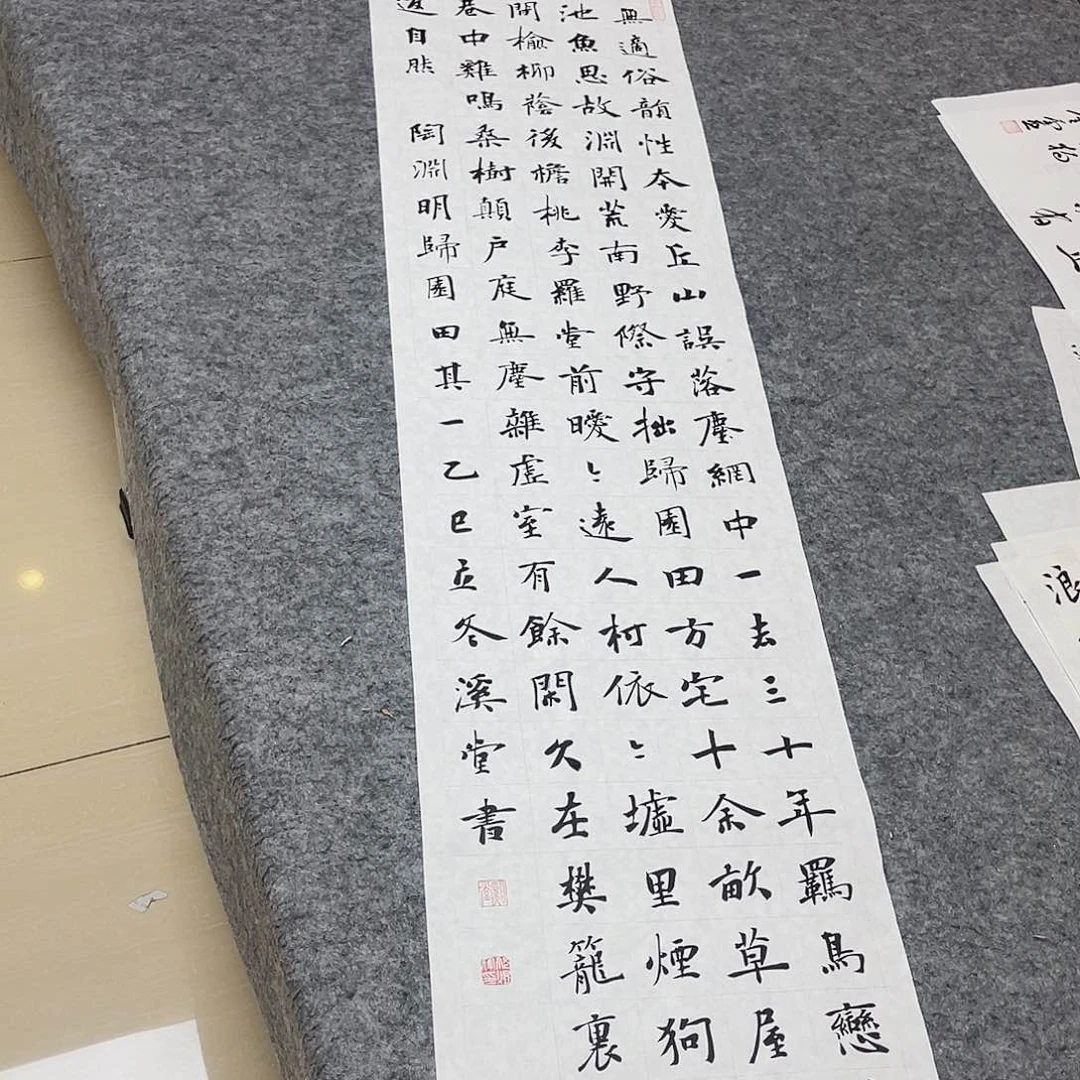 無適俗韻性本愛丘山誤落塵網中一去三十年羈鳥戀
池魚思故淵開荒南野際守拙歸園田方宅十余畝草屋
間榆柳蔭後檐桃李羅堂前曖〻遠人村依〻墟里煙狗
巷中雞鳴桑樹顛戶庭無塵雜虛室有餘閑久在樊籠裏
返自然 陶淵明歸園田其一乙巳立冬溪堂書
浪